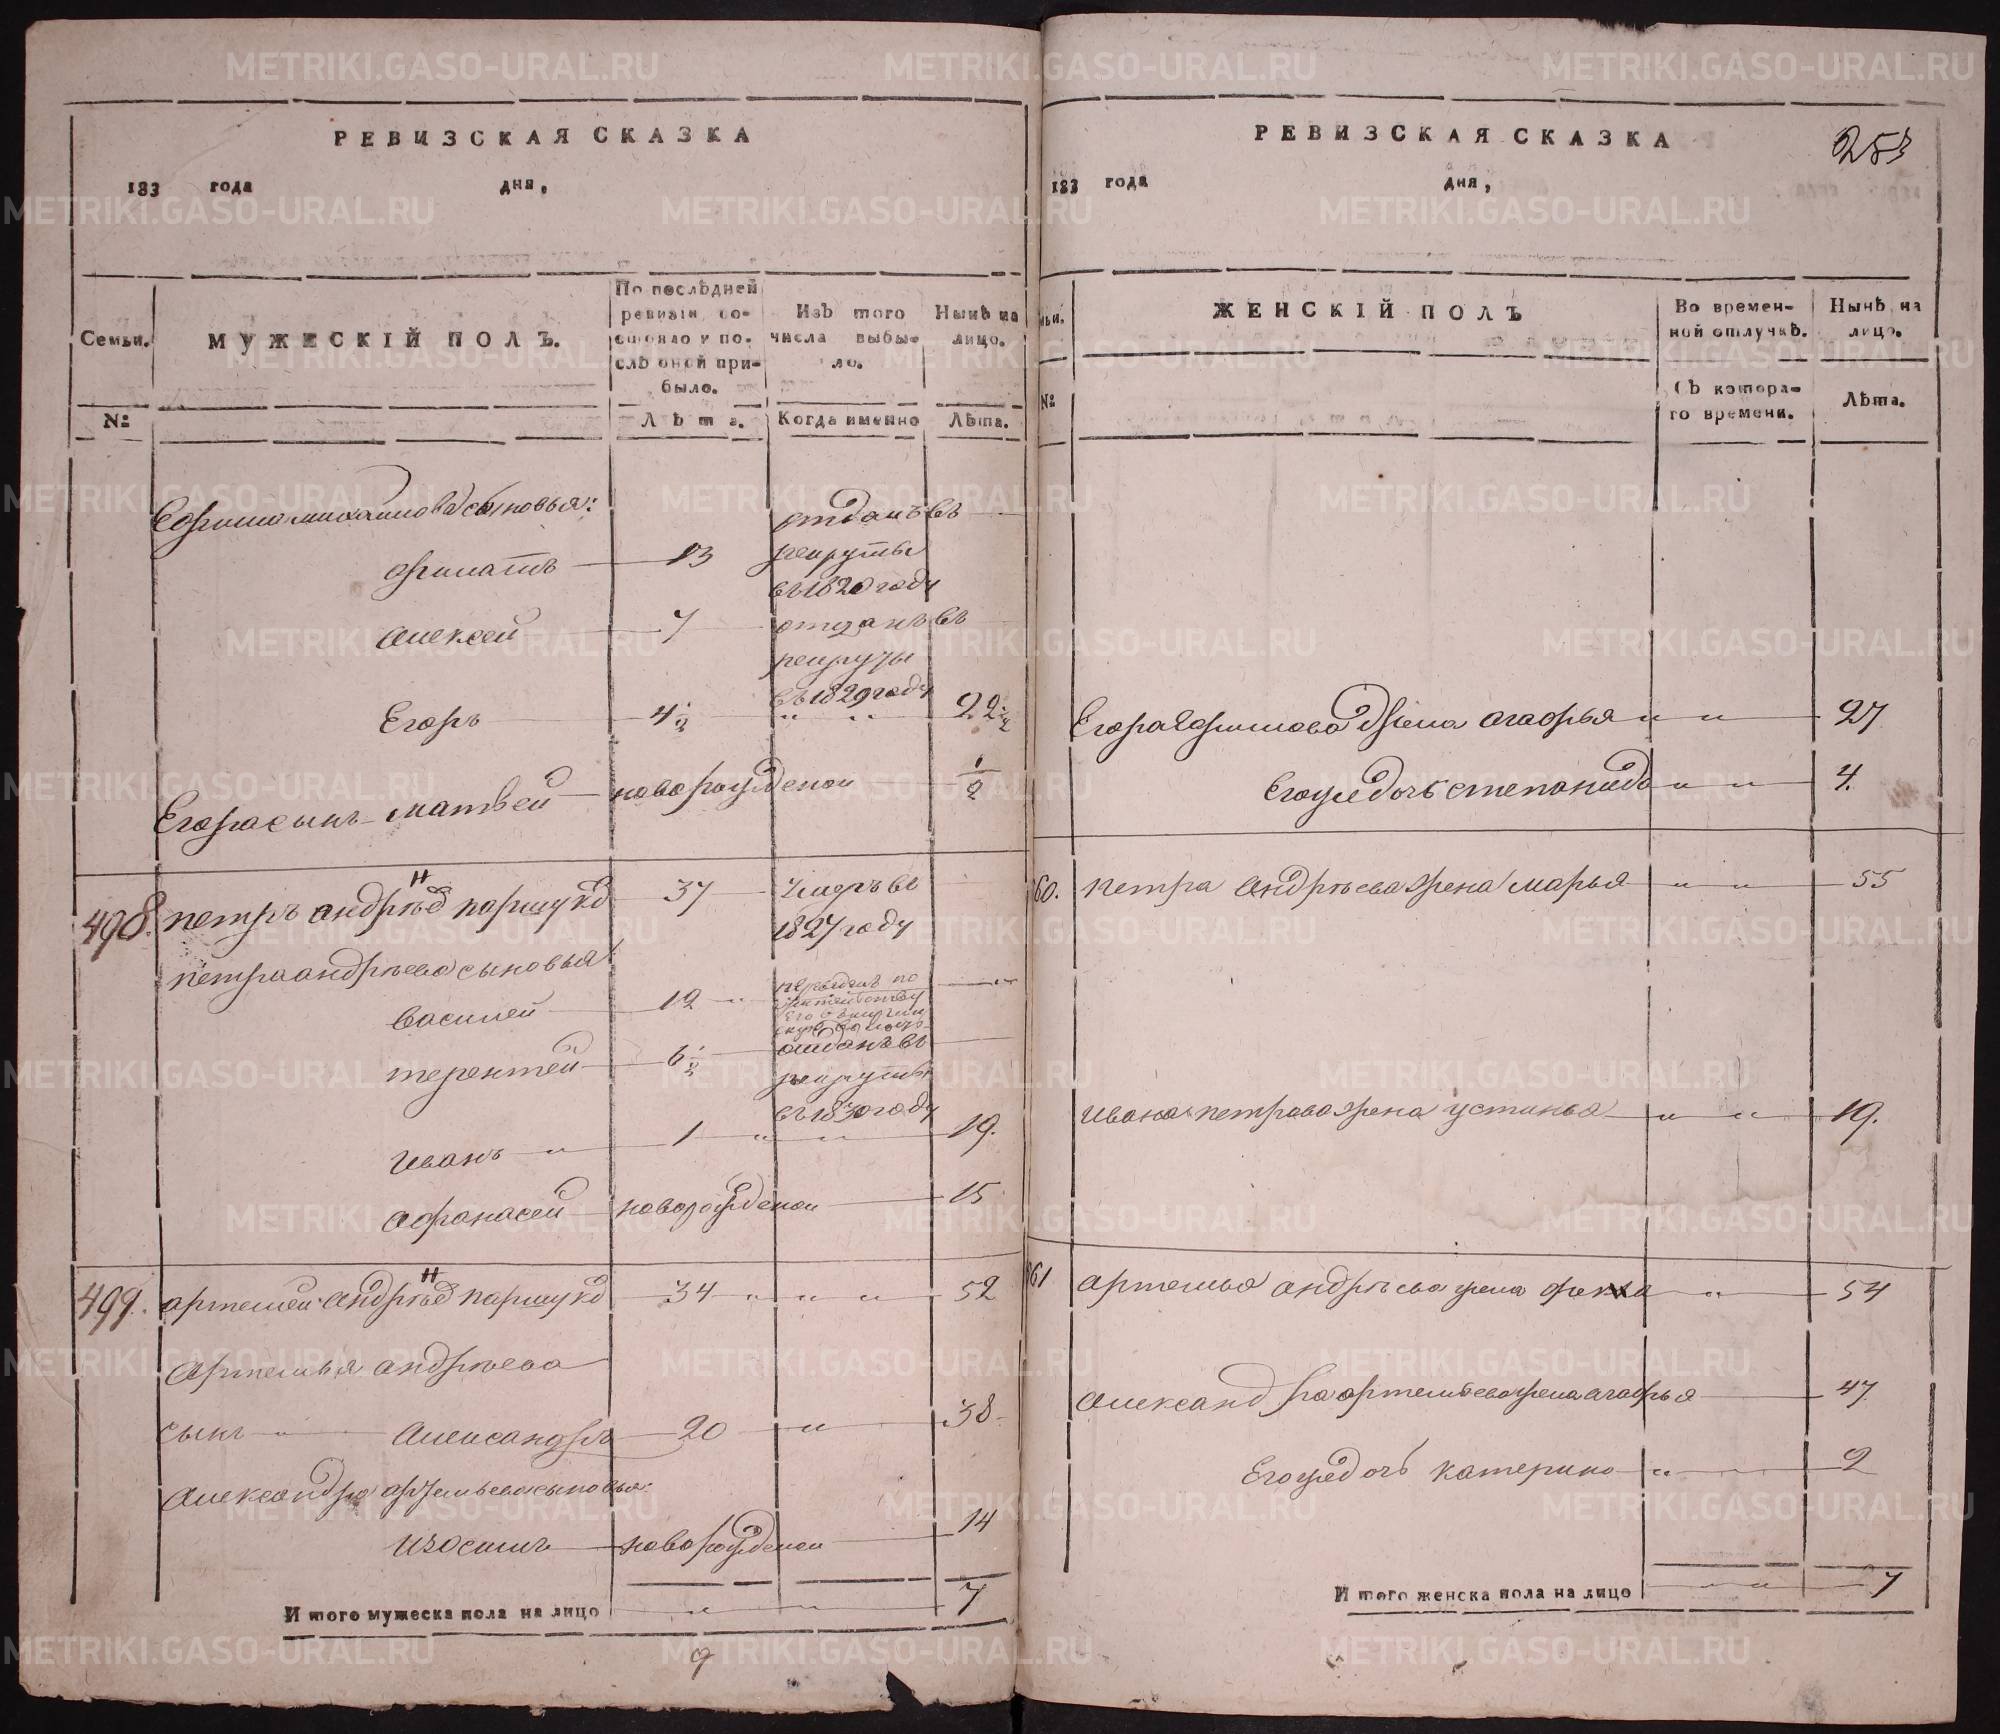 РЕВИЗСКАЯ СКАЗКА
183 года дня,
Семьи.
МУЖЕСКІЙ ПОЛЪ.
По послѣдней
ревизіи со-
стояло и по-
слѣ оной при-
было.
Изъ того
числа выбы-
ло.
Нынѣ на
лицо.
№
Лѣта.
Когда именно
Лѣта.
Ефима михаилова сыновья:
филатъ 13 отданъ въ
рекруты
въ 1820 году
алексей 7 отданъ въ
рекруты
въ 1829 году
Егоръ 4½ " " 22½
Егора сынъ матвей новорожденой ½
498. петръ андрѣевъ паршуковъ 37 умеръ въ
1827 году
петра андрѣева сыновья
василей 19 "
терентей 6½ отданъ въ
рекруты
въ 1830 году
иванъ " 1 " " 19.
афонасей новорожденой 15
499. артемей андрѣевъ паршуковъ 34 " " " 52
артемья андрѣева
сынъ " александръ 20 " 38
александра артемьева сыновья:
изосимъ новорожденой 14
Итого мужеска пола на лицо " " 7
9
РЕВИЗСКАЯ СКАЗКА
253
183 года дня,
ьи.
ЖЕНСКІЙ ПОЛЪ
Во времен-
ной отлучкѣ.
Нынѣ на
лицо.
№
Съ котора-
го времени.
Лѣта.
Егора Ефимова жена агафья " " 27
Егоже дочь степанида " " 4.
60. петра андрѣева жена марья " " 55
ивана петрова жена устинья " " 19.
61 артемья андрѣева жена фекла " 54
александра артемьева жена агафья 47
Егоже дочь катерина " 2
Итого женска пола на лицо " " 7
METRIKI.GASO-URAL.RU